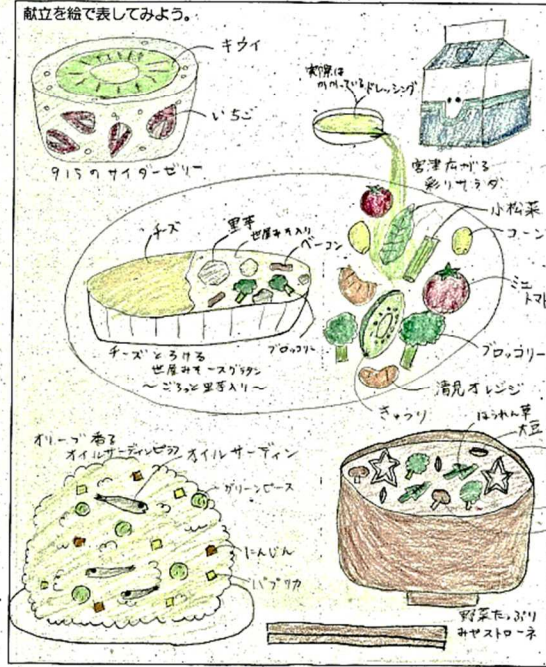 献立を絵で表してみよう。
キウイ
いちご
915のサイダーゼリー
実際は
かかっているドレッシング
宮津広がる
彩りサラダ
小松菜
コーン
ミニ
トマト
ブロッコリー
清見オレンジ
きゅうり
チーズ
里芋
世屋みそ入り
ベーコン
ブロッコリー
チーズとろける
世屋みそースグラタン
～ごろっと里芋入り～
オリーブ香る
オイルサーディンピラフ
オイルサーディン
グリーンピース
にんじん
パプリカ
ほうれん草
大豆
野菜たっぷり
みやストローネ